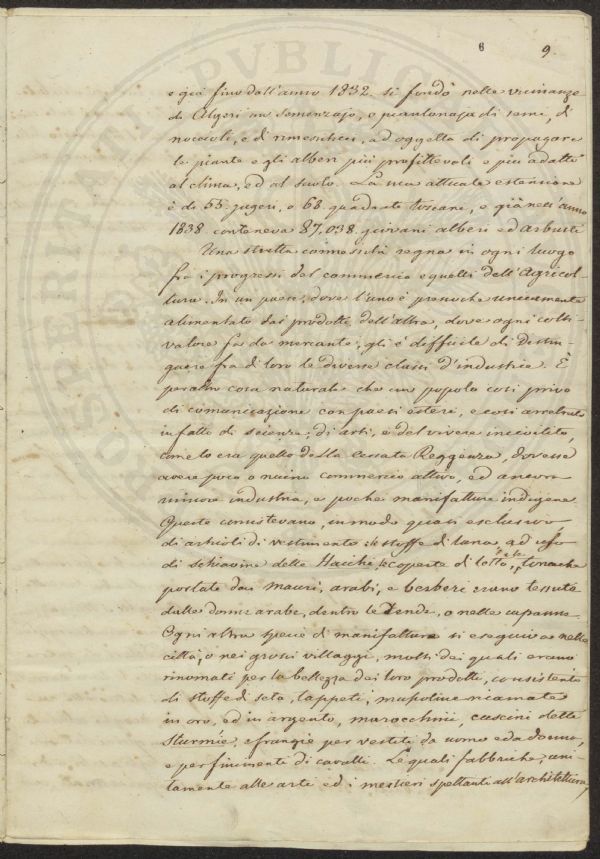 6 9.
e già fino dall'anno 1832. si fondò nelle vicinanze
di Algeri un semenzajo, o piantonaja di semi, di
noccioli, e di rimessiticci, ad oggetto di propagare
le piante e gli alberi più profittevoli e più adatti
al clima, ed al suolo. La sua attuale estensione
è di 55. jugeri, o 68. quadrati toscani, e già nell'anno
1838 conteneva 87.038. giovani alberi ed arbusti
Una stretta connessità regna in ogni luogo
fra i progressi del commercio e quelli dell'Agricol
tura. In un paese, dove l'uno è pressoche unicamente
alimentato dai prodotti dell'altra, dove ogni colti-
vatore fa da mercante, gli è difficile di distin
guere fra di loro le diverse classi d'industria. È
peraltro cosa naturale che un popolo così privo
di comunicazione con paesi esteri, e così arretrato
in fatto di scienze, di arti, e del vivere incivilito,
come lo era quello della cessata Reggenza, dovesse
avere poco o niuno commercio attivo, ed ancora
minore industria, e poche manifatture indigene
Queste consistevano, in modo quasi esclusivo
di articoli di vestimento e stoffe di lana, ad uso
di schiavine dette Haicke, e coperte di letto, tonache
portate dai mauri, arabi, e berberi erano tessute
dalle donne arabe, dentro le Tende, o nelle capanne.
Ogni altra specie di manifattura si eseguiva nelle
città, o nei grossi villaggi, molti dei quali erano
rinomati per la bellezza dei loro prodotti, consistenti
di stoffe di seta, tappeti, mussoline ricamate
in oro, ed in argento, marocchini, cuscini detti
Sturmíe, e frangie per vestiti da uomo e da donna,
e per finimenti di cavalli. Le quali fabbriche, uni-
tamente alle arti ed i mestieri spettanti all'architettura,